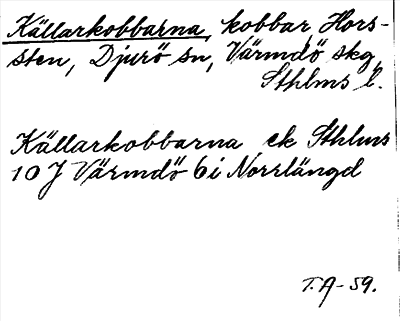 Källarkobbarna, kobbar Hors-
sten, Djurö sn, Värmdö skg,
Sthlms l.
Källarkobbarna ek Sthlms
10 J Värmdö 6i Norrlängd
T.A-59.